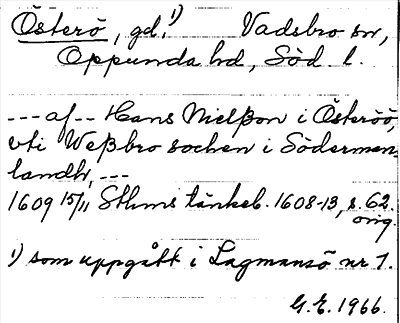 Österö, gd.¹) Vadsbro sn,
Oppunda hd, Söd. l.
--- af -- Hans Nielßon i Österöö,
vti Weßbro sochen i Söderman-
landh, ---
1609 15/11 Sthms tänkeb. 1608-13, s. 62.
orig.
¹) som uppgått i Lagmansö nr 1.
G.E. 1966.